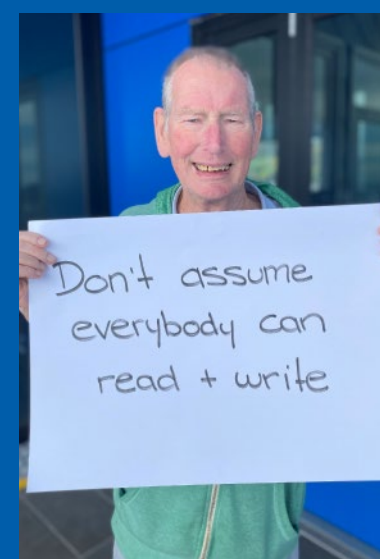 Don't assume
everybody can
read + write